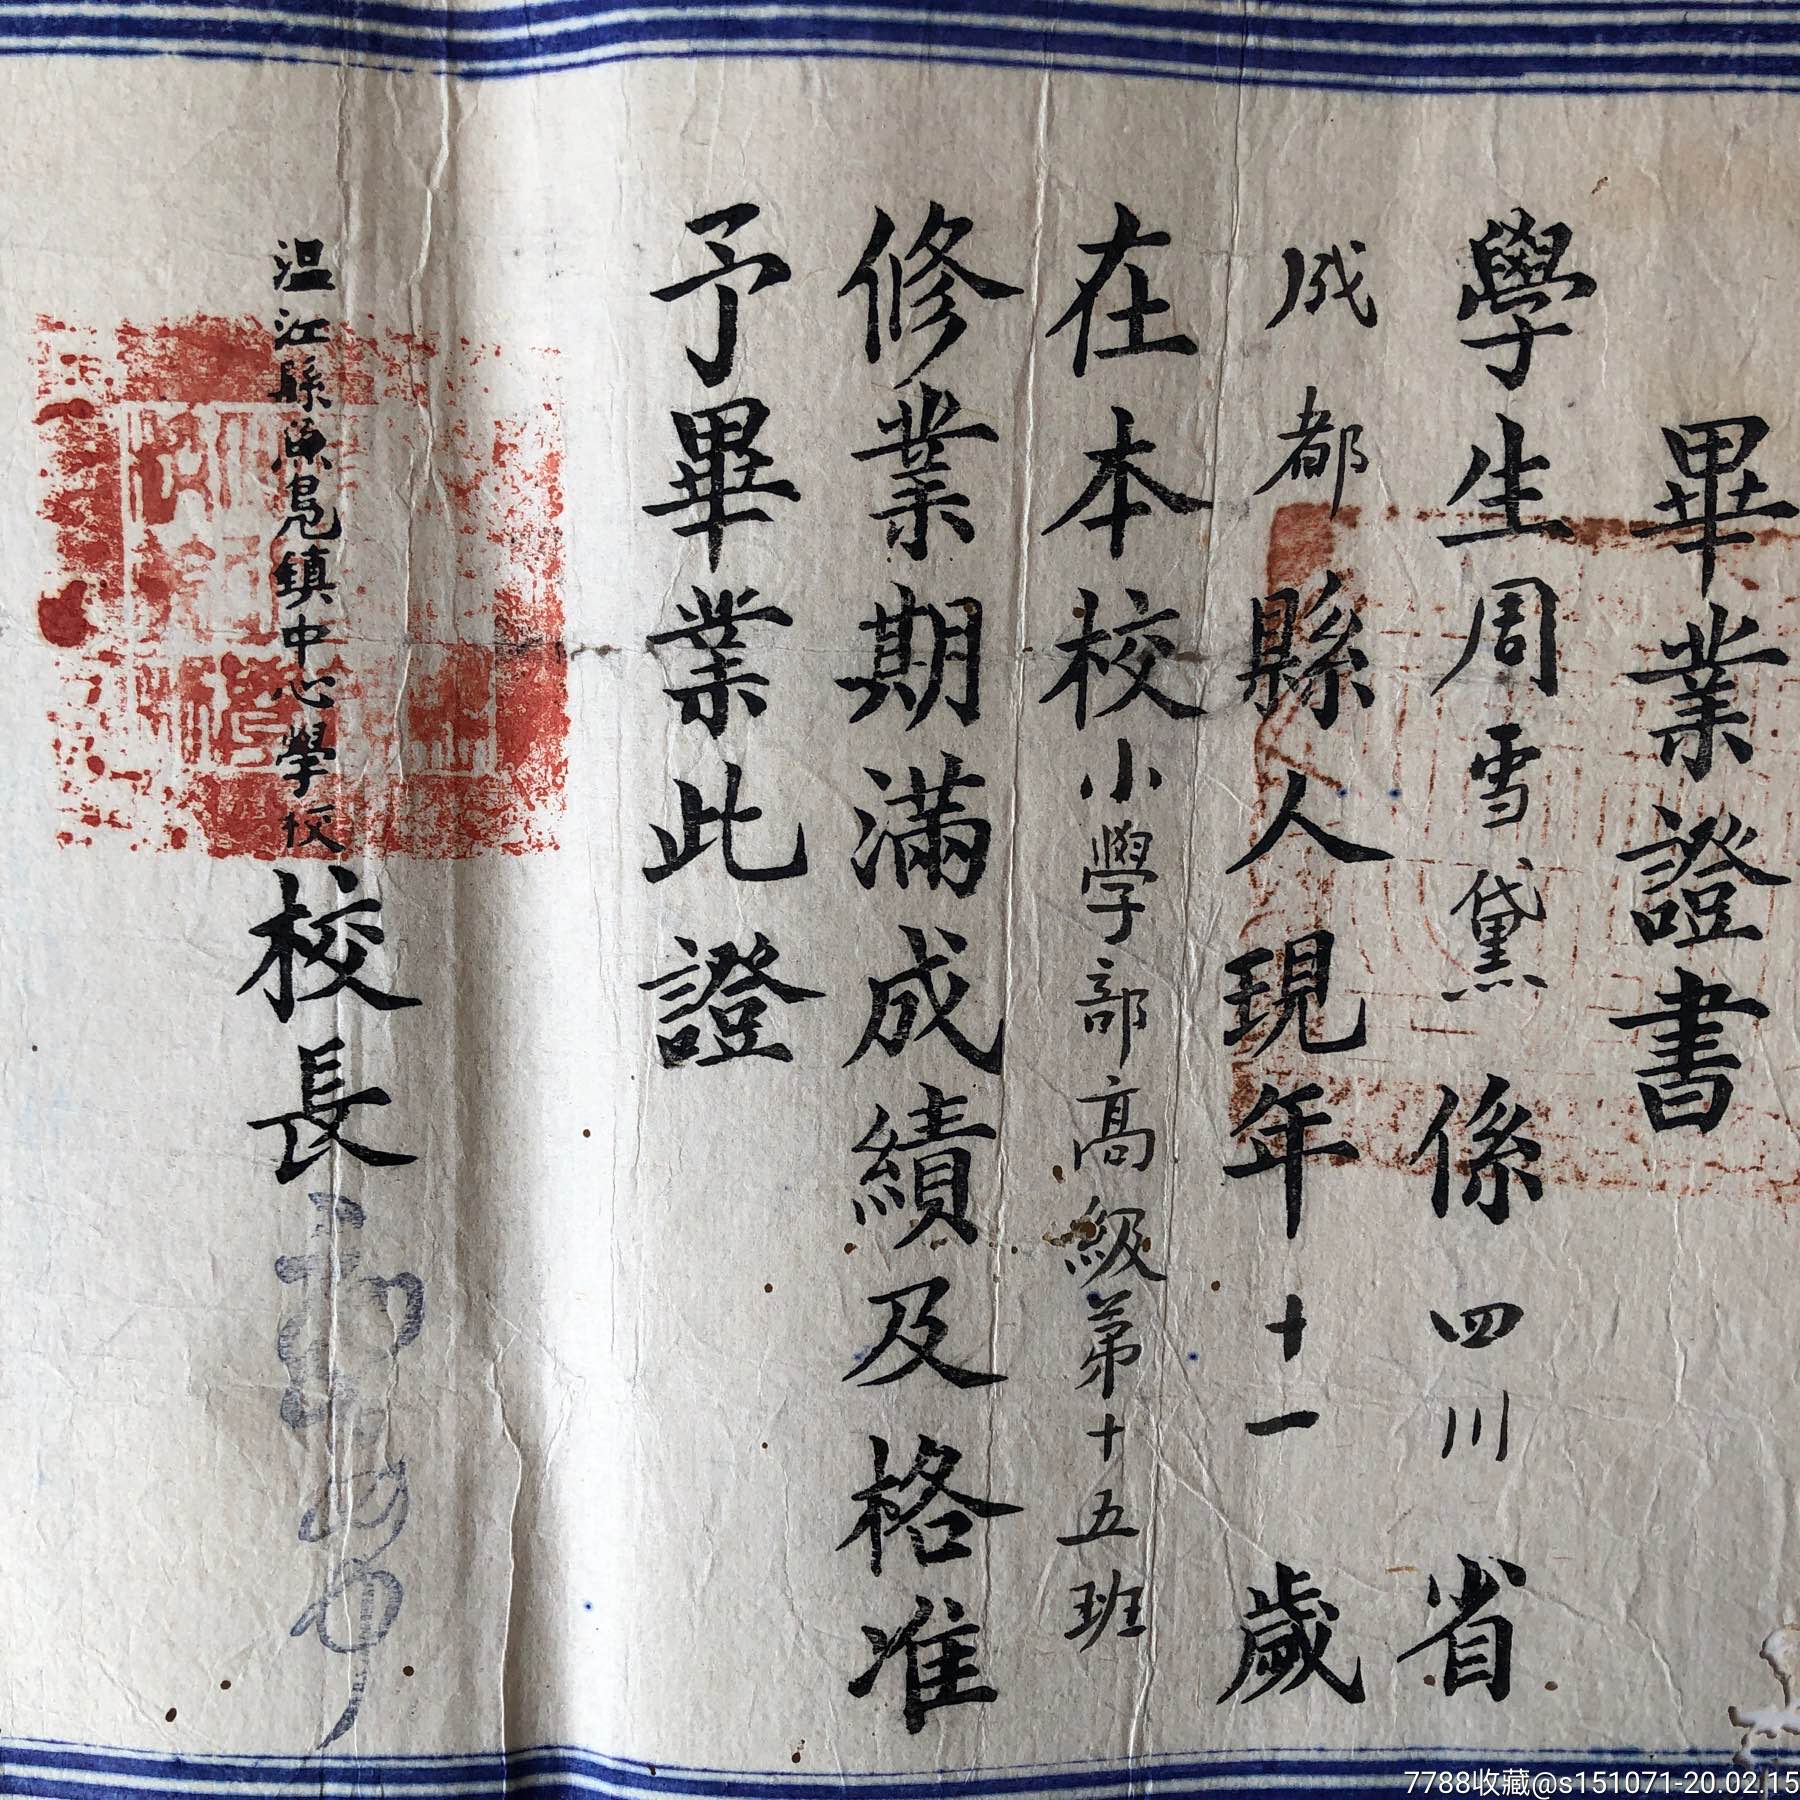 畢業證書
學生周雪黛係四川省
成都縣人現年十一歲
在本校小學部高級第十五班
修業期滿成績及格准
予畢業此證
温江縣魚鳧鎮中心學校校長
7788收藏@s151071-20.02.15